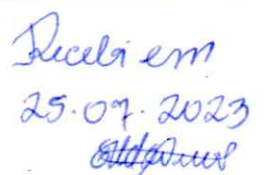 Recebi em
25.07.2023